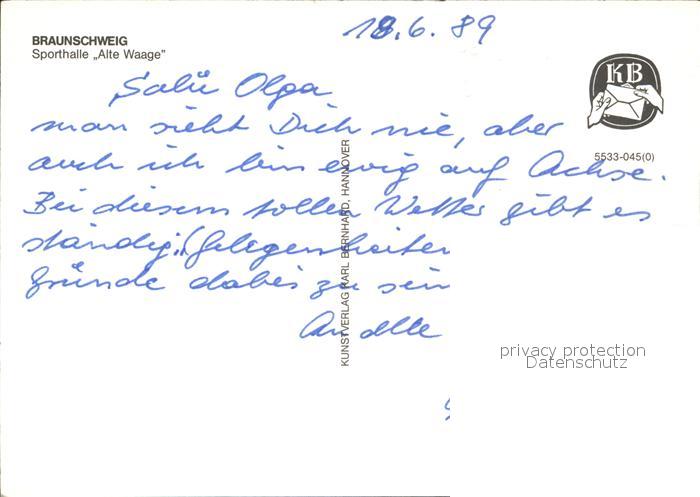 BRAUNSCHWEIG
Sporthalle „Alte Waage"
18.6.89
KB
5533-045(0)
Salü Olga
man sieht Dich nie, aber
auch ich bin ewig auf Achse.
Bei diesem tollen Wetter gibt es
ständig Gelegenheiten
Gründe dabei zu sein
KUNSTVERLAG KARL BERNHARD, HANNOVER
privacy protection
Datenschutz